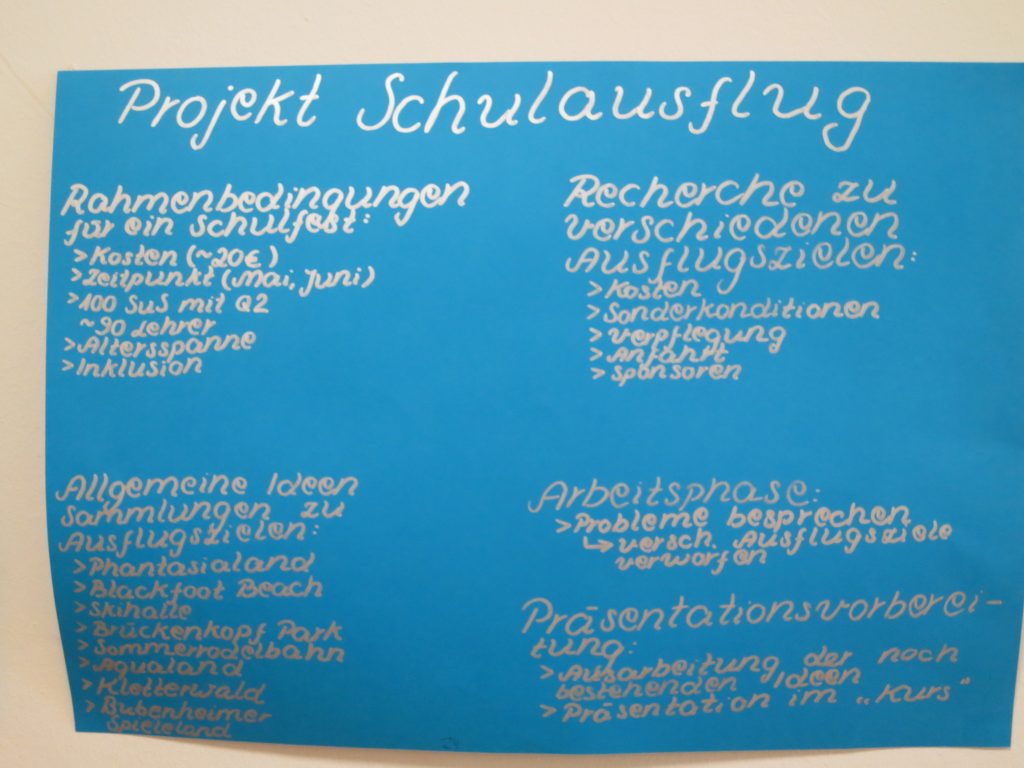 Projekt Schulausflug
Rahmenbedingungen
für ein Schulfest:
>Kosten (~20€)
>Zeitpunkt (Mai, Juni)
>100 SuS mit Q2
~90 Lehrer
>Altersspanne
>Inklusion
Recherche zu
verschiedenen
Ausflugszielen:
>Kosten
>Sonderkonditionen
>Verpflegung
>Anfahrt
>Sponsoren
Allgemeine Ideen
Sammlungen zu
Ausflugszielen:
>Phantasialand
>Blackfoot Beach
>Skihalle
>Brückenkopf Park
>Sommerrodelbahn
>Aqualand
>Kletterwald
>Bubenheimer
Spieleland
Arbeitsphase:
>Probleme besprechen
↳ versch. Ausflugsziele
verworfen
Präsentationsvorberei-
tung:
>Ausarbeitung der noch
bestehenden Ideen
>Präsentation im „Kurs“